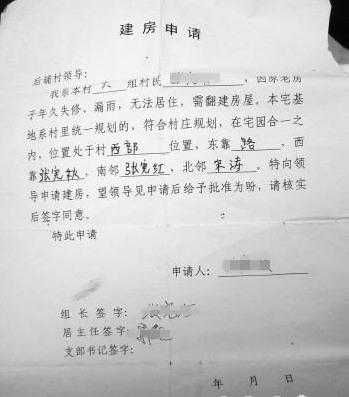 建房申请
后铺村领导：
我系本村 六 组村民 ，因原老房
子年久失修、漏雨，无法居住，需翻建房屋。本宅基
地系村里统一规划的，符合村庄规划，在宅园合一之
内，位置处于村 西部 位置，东靠 路 、西
靠张宪秋、南邻 张宪红、北邻 宋涛 。特向领
导申请建房，望领导见申请后给予批准为盼，请核实
后签字同意。
特此申请
申请人：
组 长 签 字：
居主任签字：
支部书记签字：
年 月 日